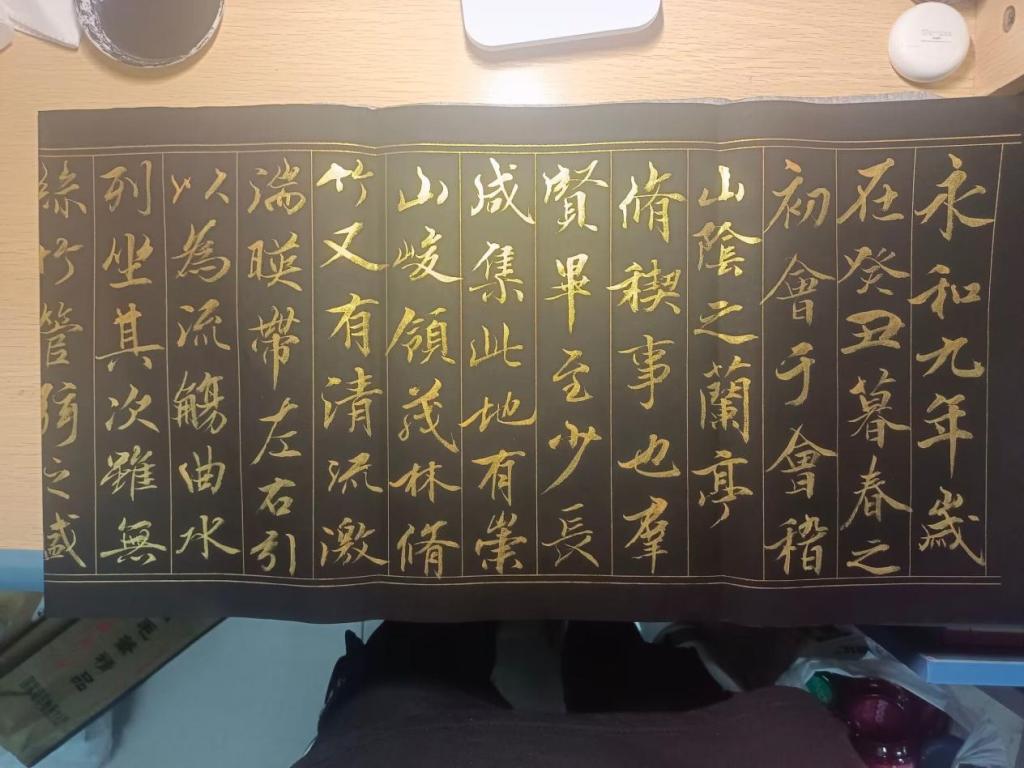 永和九年歲
在癸丑暮春之
初會于會稽
山陰之蘭亭
脩稧事也羣
賢畢至少長
咸集此地有崇
山峻領茂林脩
竹又有清流激
湍暎帶左右引
以為流觴曲水
列坐其次雖無
絲竹管弦之盛
精品